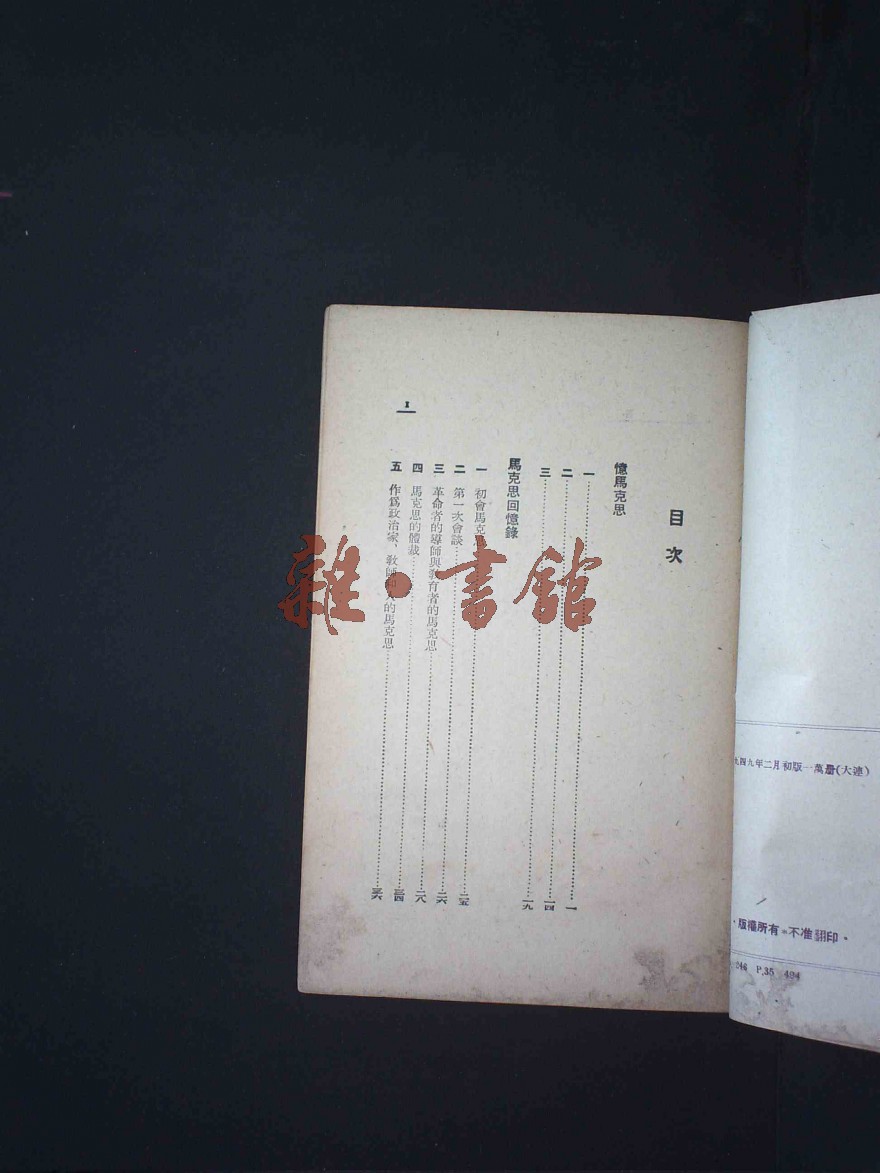 目次
憶馬克思
一……一
二……一四
三……一九
馬克思回憶錄
一 初會馬克……二五
二 第一次會談……二六
三 革命者的導師與教育者的馬克思……二八
四 馬克思的體裁……三四
五 作爲政治家，教師 的馬克思……三六
1
四九年二月初版一萬册(大連)
·版權所有·不准翻印·
246 P.35 494
雜·書館